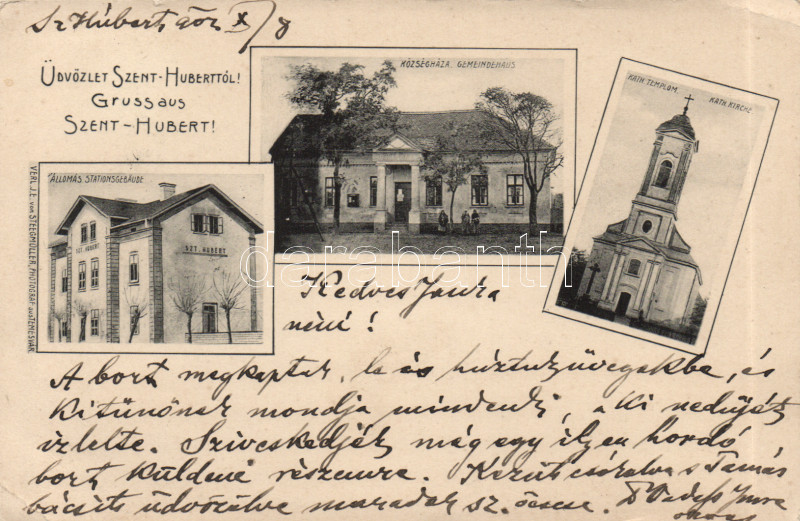 Sz Hubert 
ÜDVÖZLET SZENT-HUBERTTŐL!
GRUSS AUS
SZENT-HUBERT!
KÖZSÉGHÁZA. GEMEINDEHAUS
KATH. TEMPLOM.
KATH. KIRCHE
ÁLLOMÁS STATIONSGEBÄUDE
SZT. HUBERT
SZT. HUBERT
VERL. J.E. von STEEGMÜLLER, PHOTOGRAF aus TEMESVÁR
darabanth
Kedves Imra
néni!
A bort megkaptak, le is húztuk üvegekbe, és
kitűnőnek mondja mindenki, a ki nedvjét
izlelte. Sziveskedjék még egy ilyen hordó
bort küldeni részemre. Kezüt csókolva s Tamás
bácsit üdvözölve maradok sz. öcscse. Imre